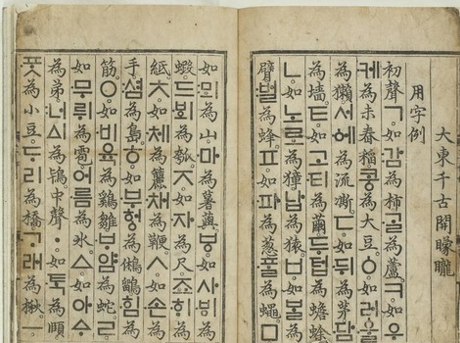 大東千古開矇矓
用字例
初聲ㄱ。如감為柿。ᄀᆞᆯ為蘆。ㅋ。如우
케為未舂稻。콩為大豆。ㆁ。如러ᅌᅮᆯ
為獺。서ᅌᅦ為流凘。ㄷ。如뒤為茅。담
為墻。ㅌ。如고티為繭。두텁為蟾蜍。
ㄴ。如노로為獐。납為猿。ㅂ。如ᄇᆞᆯ為
臂。벌為蜂。ㅍ。如파為葱。ᄑᆞᆯ為蠅。ㅁ
如뫼為山。마為薯藇。ㅸ。如사ᄫᅵ為
蝦。드ᄫᅴ為瓠。ㅈ。如자為尺。죠ᄒᆡ為
紙。ㅊ。如체為簏。채為鞭。ㅅ。如손為
手。셤為島。ㅎ。如부헝為鵂鶹。힘為
筋。ㅇ。如비육為鷄雛。ᄇᆞ얌為蛇。ㄹ。
如무뤼為雹。어름為氷。ㅿ。如아ᅀᆞ
為弟。너ᅀᅵ為鴇。中聲ㆍ。如ᄐᆞᆨ為頤。
ᄑᆞᆺ為小豆。ᄃᆞ리為橋。ᄀᆞ래為楸。ㅡ。